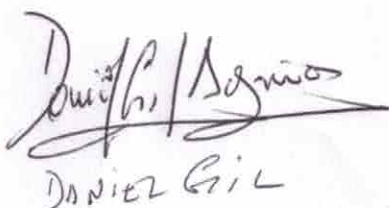 Daniel Gil
DANIEL GIL